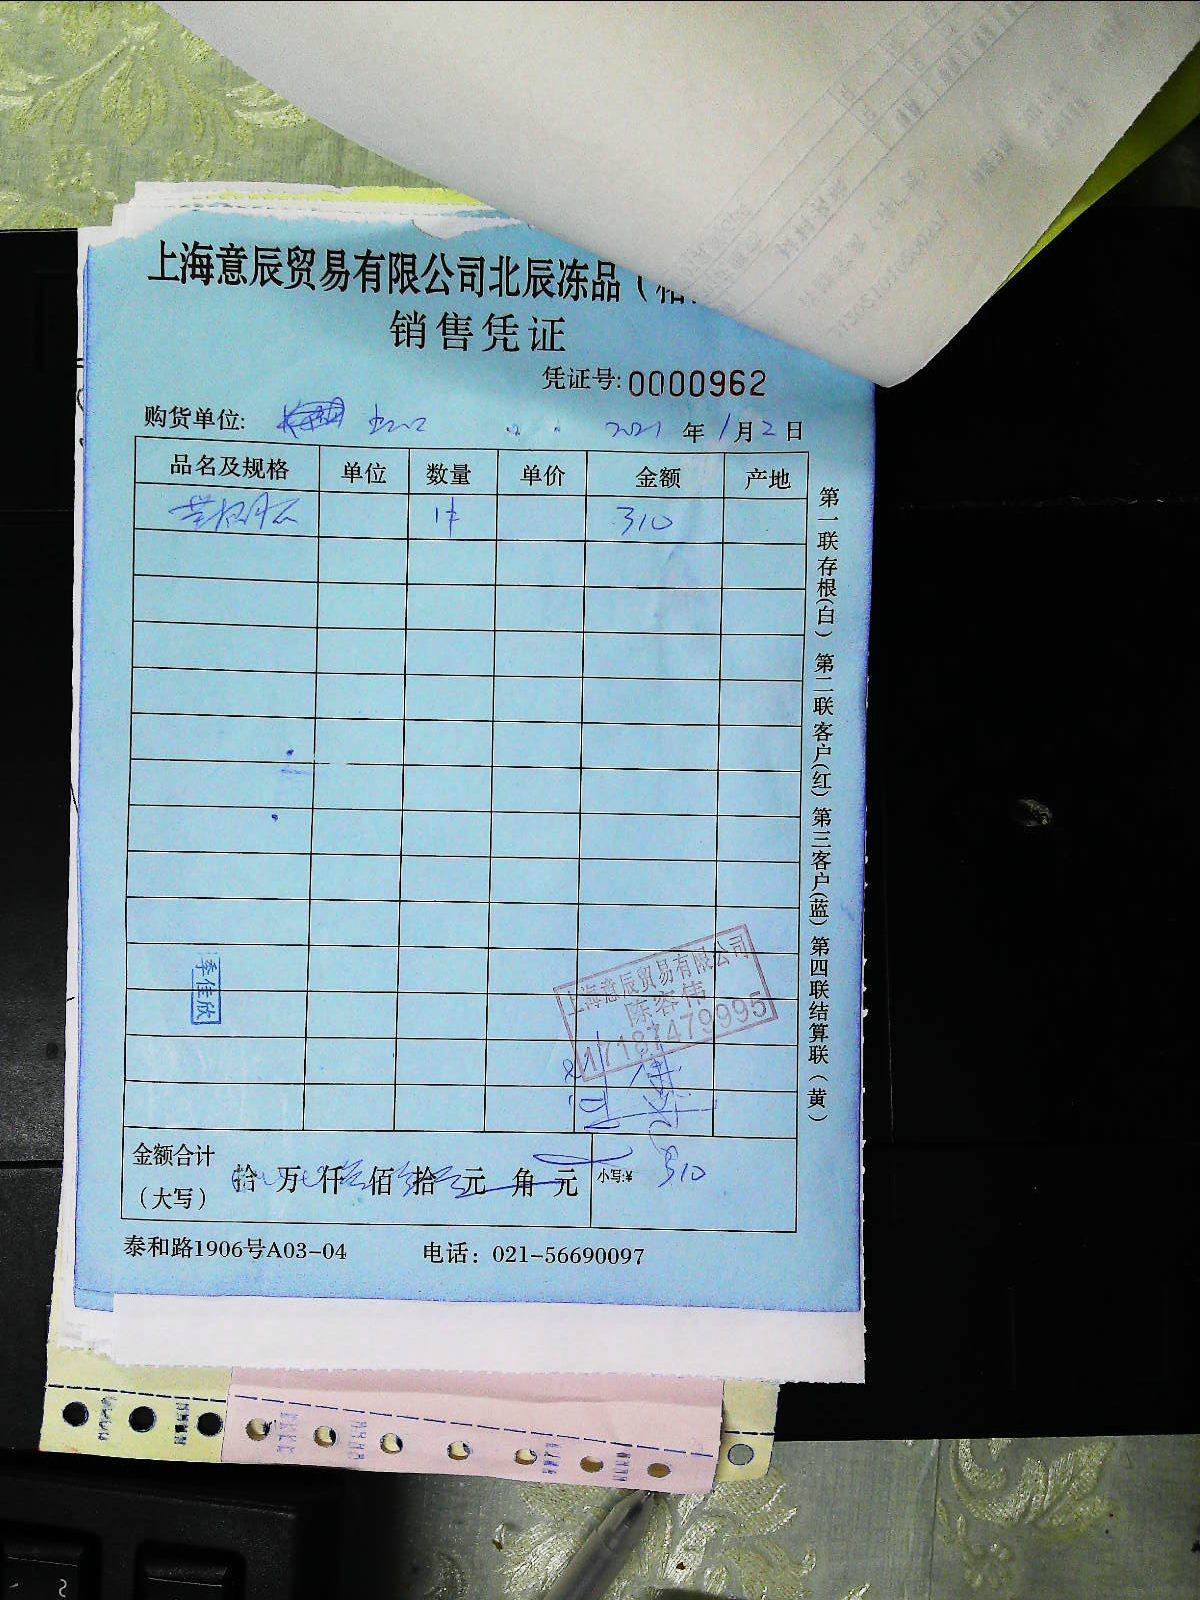 上海意辰贸易有限公司北辰冻品（
销售凭证
凭证号:0000962
购货单位: 2021 年 1 月 2 日
品名及规格 单位 数量 单价 金额 产地
1件 310
第一联存根(白) 第二联客户(红) 第三客户(蓝) 第四联结算联（黄）
季佳欣
上海意辰贸易有限公司
陈容伟
17187479995
金额合计
（大写）
拾 万 仟 佰 拾 元 角 元 小写:¥ 310
泰和路1906号A03-04 电话：021-56690097